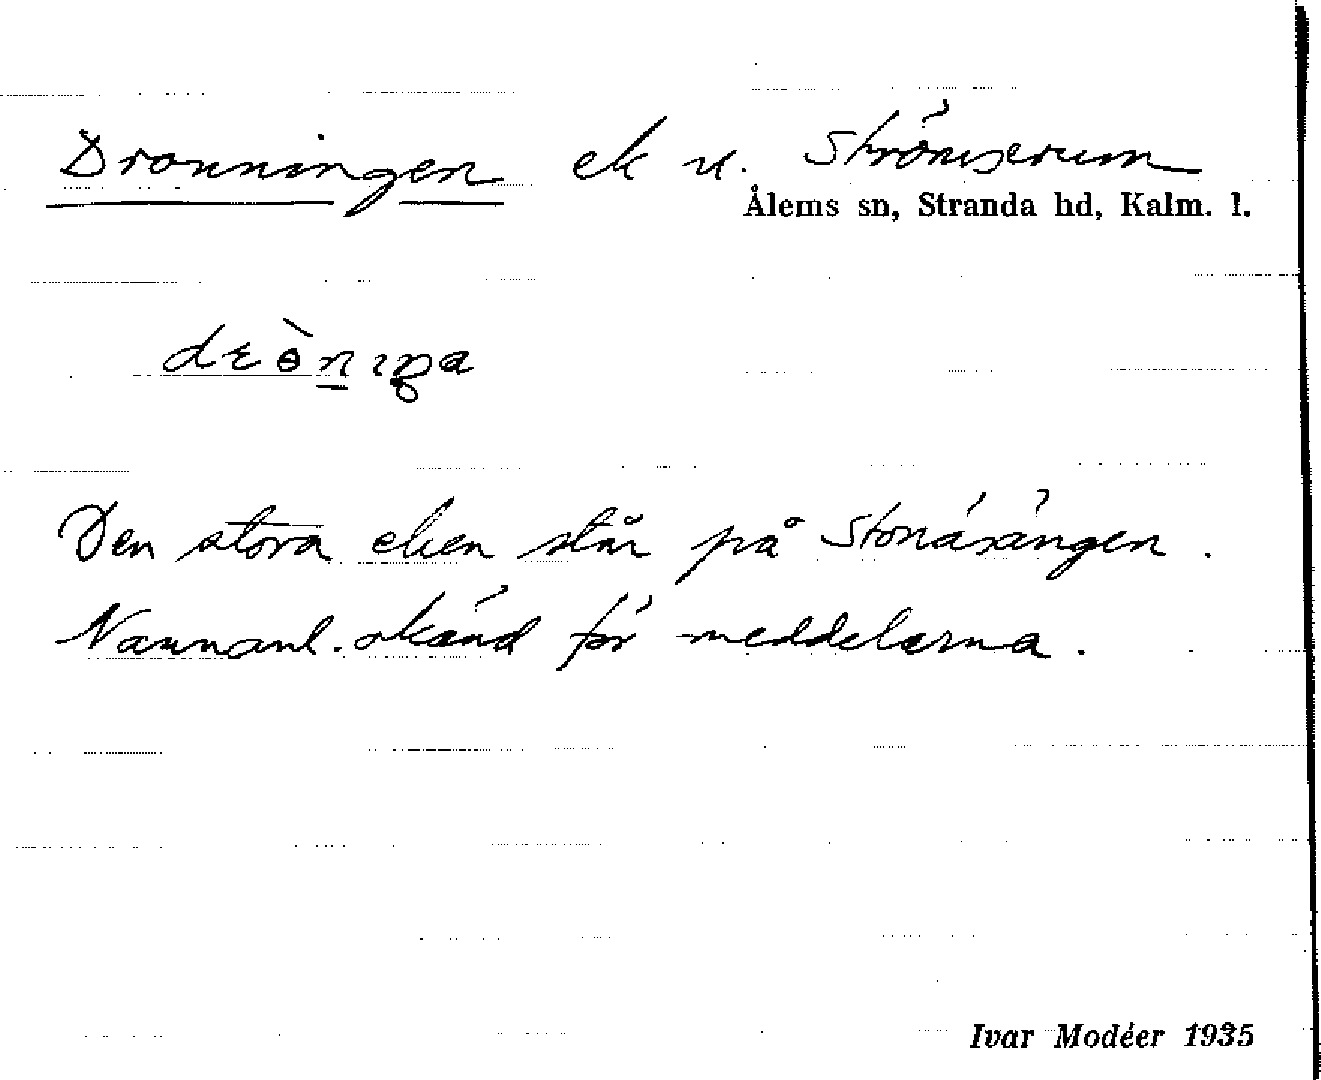 Dronningen ek u. Strömserum
Ålems sn, Stranda hd, Kalm. l.
Den stora eken står på Storåsängen.
Namnanl. okänd för meddelarna.
Ivar Modéer 1935